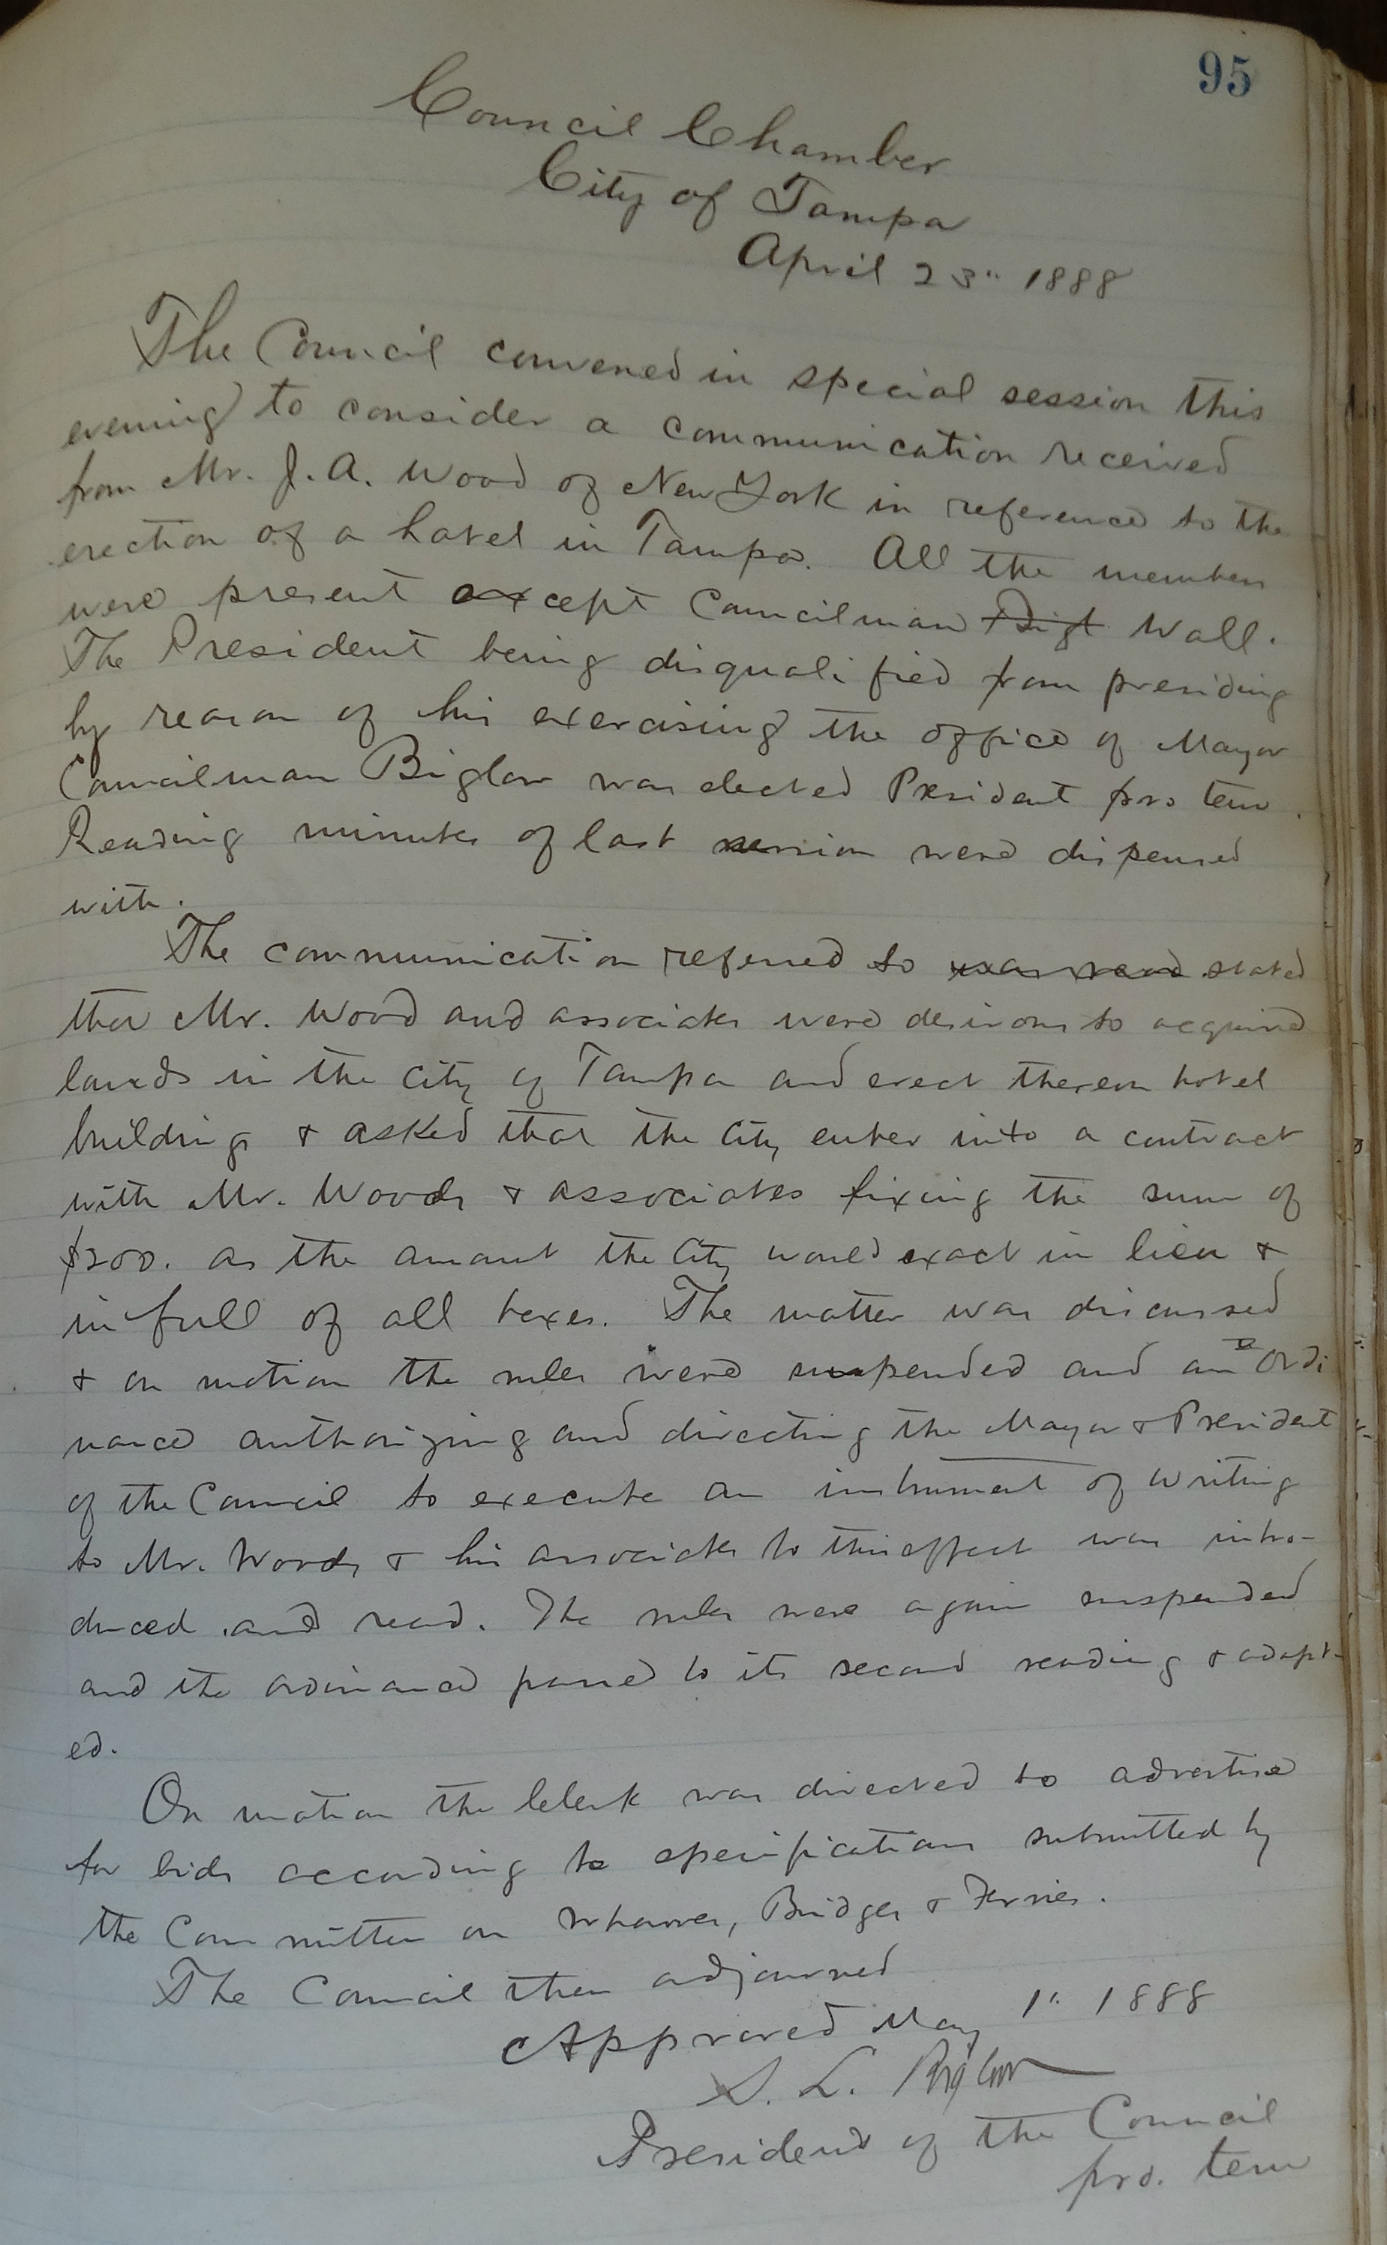 95
Council Chamber
City of Tampa
April 23" 1888
The Council convened in special session this
evening to consider a communication received
from Mr. J. A. Wood of New York in reference to the
erection of a hotel in Tampa. All the members
were present except Councilman Wall.
The President being disqualified from presiding
by reason of his exercising the office of Mayor
Councilman Biglow was elected President pro tem.
Reading minutes of last session were dispensed
with.
The communication referred to was read stated
that Mr. Wood and associates were desirous to acquire
lands in the city of Tampa and erect thereon hotel
buildings & asked that the City enter into a contract
with Mr. Woods & associates fixing the sum of
$200. as the amount the City would exact in lieu &
in full of all taxes. The matter was discussed
& on motion the rules were suspended and an Ordi
nance authorizing and directing the Mayor & President
of the Council to execute an instrument of writing
to Mr. Woods & his associates to this effect was intro-
duced and read. The rules were again suspended
and the ordinance passed to its second reading & adopt-
ed.
On motion the Clerk was directed to advertise
for bids according to specifications submitted by
the Committee on Wharves, Bridges & Ferries.
The Council then adjourned
Approved May 1" 1888
S. L. Biglow
President of the Council
pro. tem